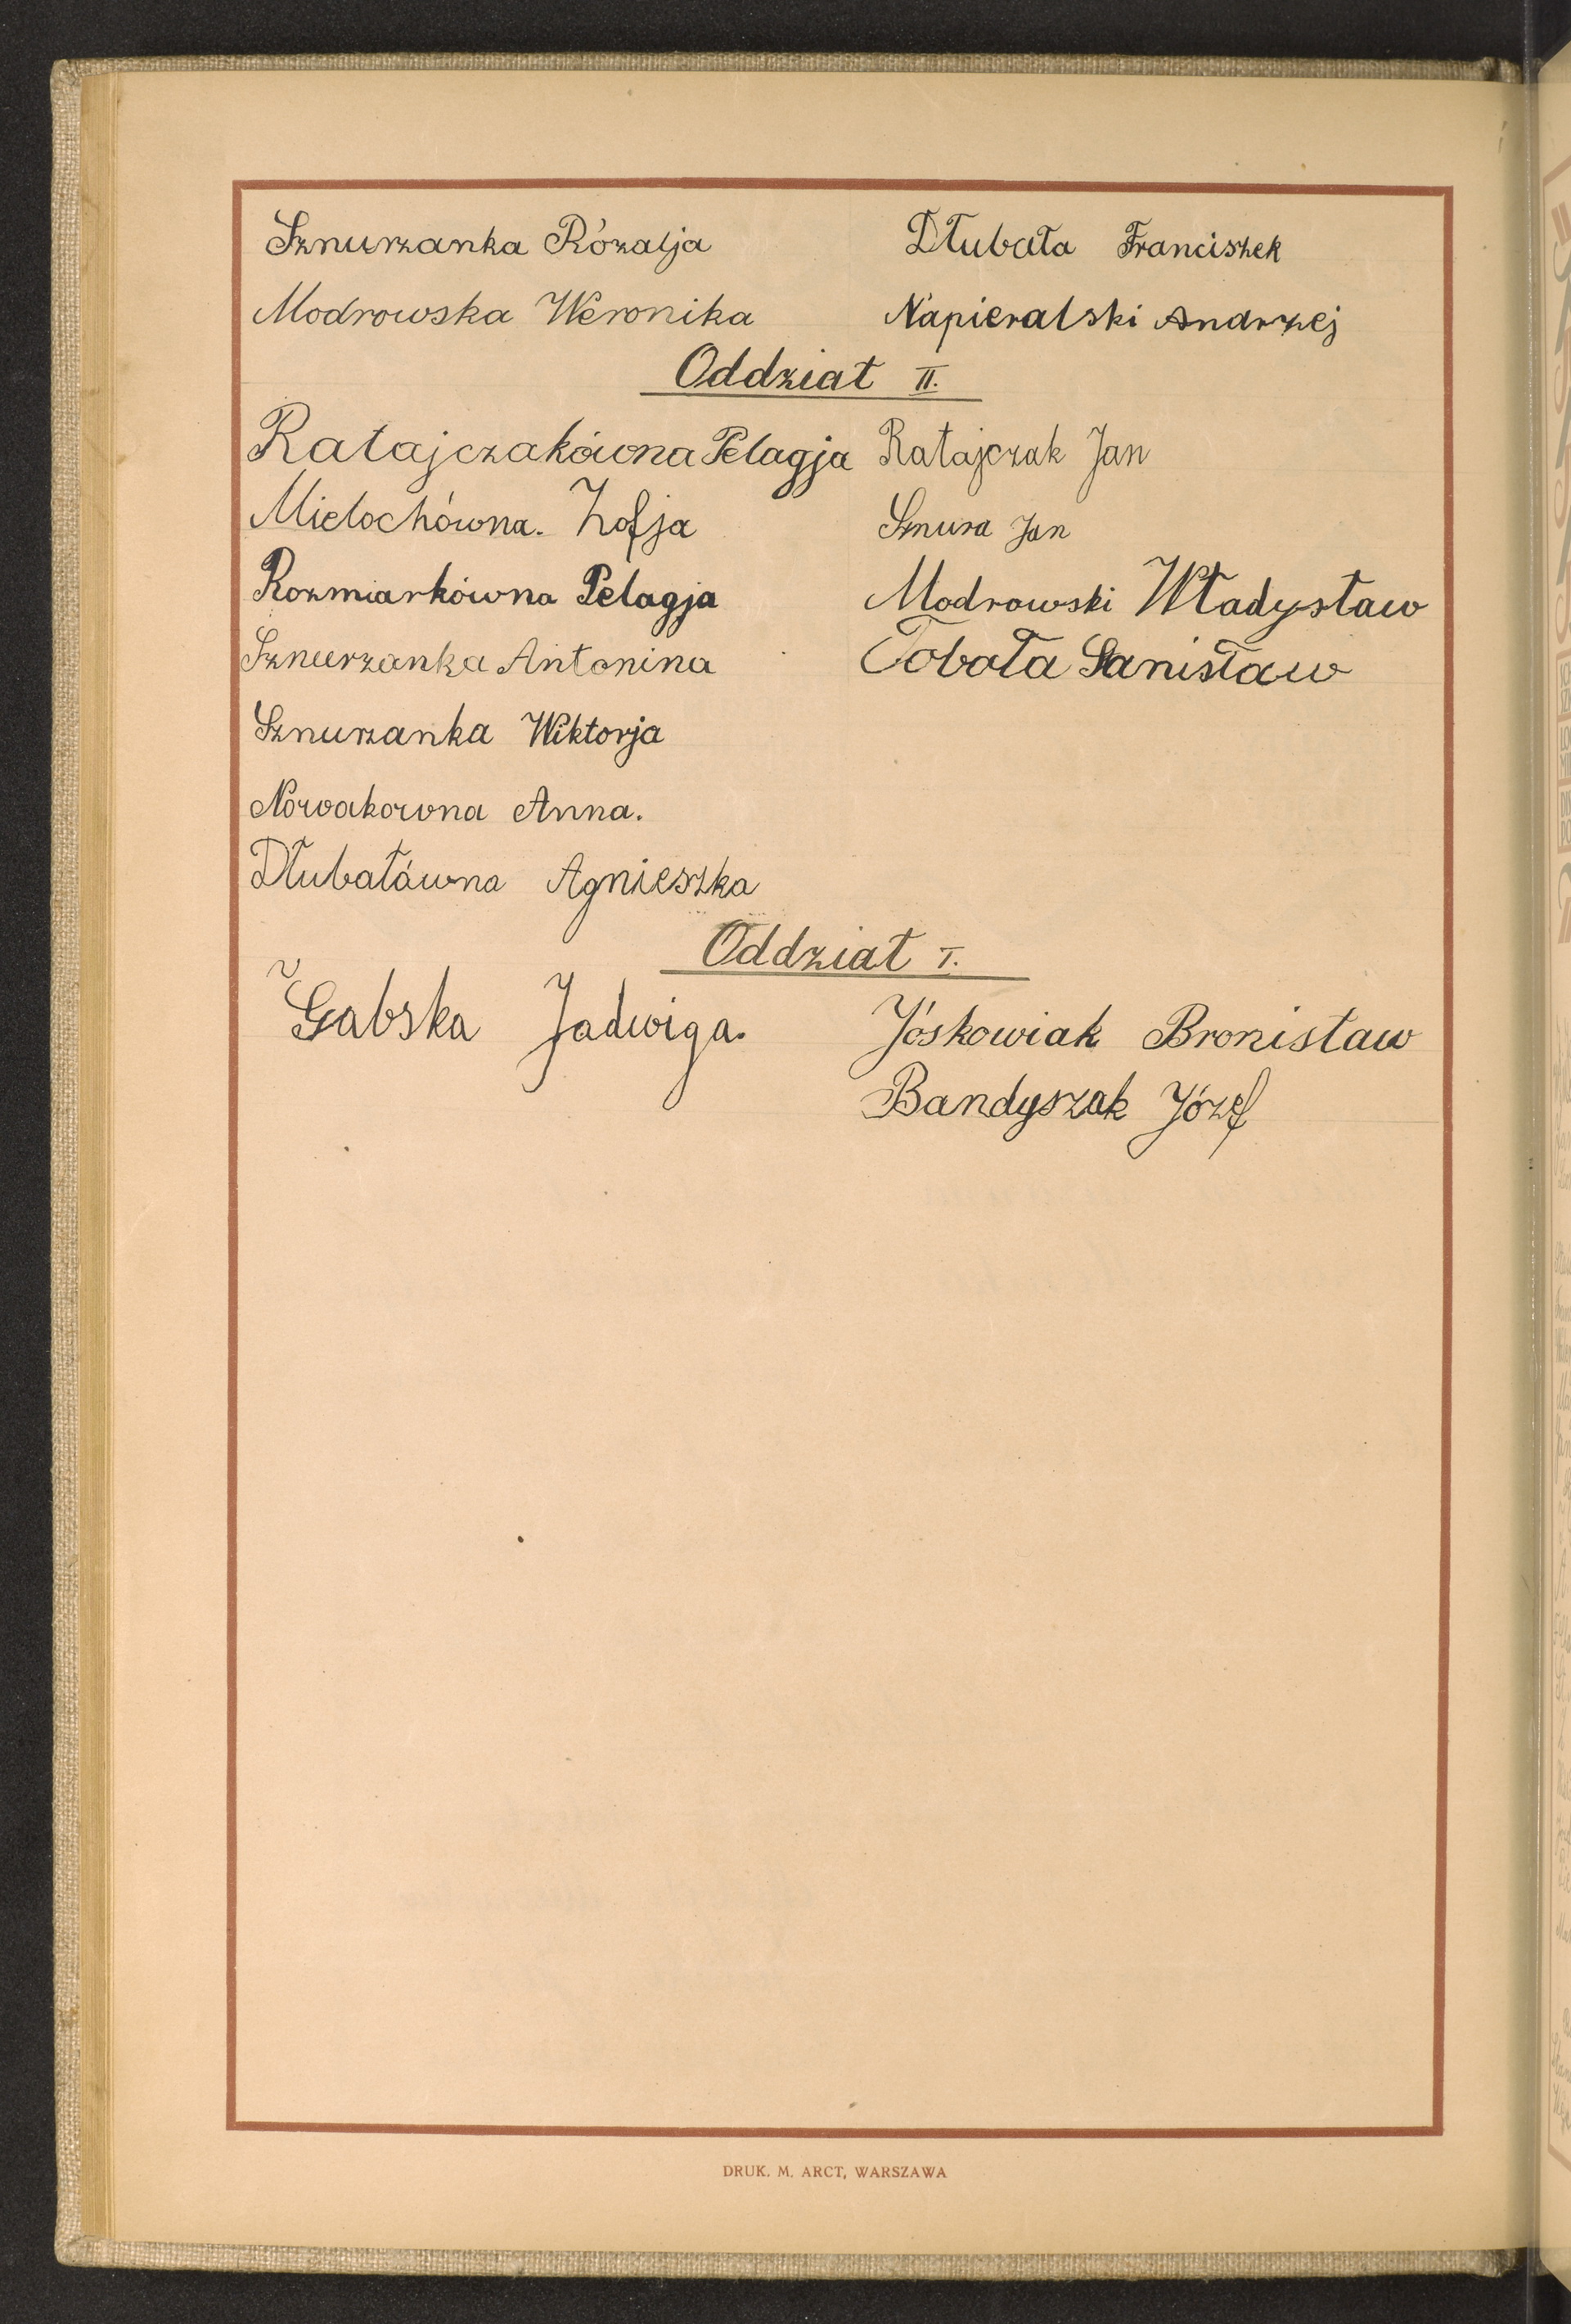 Sznurzanka Rózalja Dłubała Franciszek
Modrowska Weronika Napieralski Andrzej
Oddział II.
Ratajczakówna Pelagja Ratajczak Jan
Mielochówna. Zofja Sznura Jan
Rozmiarkówna Pelagja Modrowski Władysław
Sznurzanka Antonina Tobała Stanisław
Sznurzanka Wiktorja
Nowakowna Anna.
Dłubałówna Agnieszka
Oddział I.
Gabska Jadwiga. Jóskowiak Bronisław
Bandyszak Józef
DRUK. M. ARCT, WARSZAWA